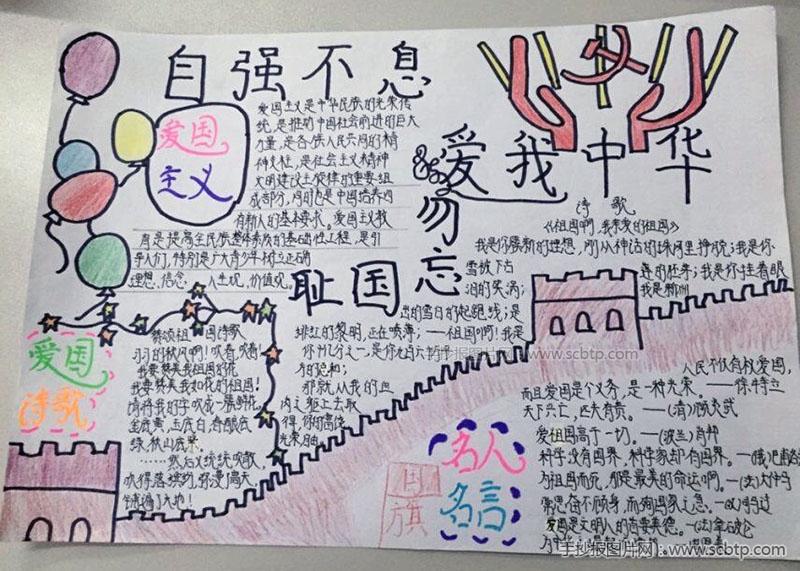 自强不息
爱国
主义
爱国主义是中华民族的光荣传
统,是推动中国社会前进的巨大
力量,是各族人民共同的精
神支柱,是社会主义精神
文明建设主旋律的重要组
成部分,同时也是中国培养四
有新人的基本要求。爱国主义教
育是提高全民族整体素质的基础性工程,是引
导人们,特别是广大青少年树立正确
理想、信念、人生观、价值观。
爱我中华
勿忘
国耻
诗歌
《祖国啊,我亲爱的祖国》
我是你簇新的理想,刚从神话的蛛网里挣脱;我是你
雪被下古莲的胚芽;我是你挂着眼
泪的笑涡;我是新刷
出的雪白的起跑线;是
绯红的黎明,正在喷薄;——祖国啊!我是
和;
那就从我的血
肉之躯上去取
得,你的富饶
爱国
诗歌
赞颂祖国诗歌
习习的秋风啊!吹着,吹着!
我要赞美我祖国的花
我要赞美我如花的祖国!
请将我的字吹成一簇鲜花
金底黄,玉底白,春酿底
绿,秋山底紫
……然后又统统吹散,
吹得落英缤纷,弥漫高天,
铺遍了大地!
名人
名言
国
旗
人民不仅有权爱国,
而且爱国是个义务,是一种光荣。——徐特立
天下兴亡,匹夫有责。——(清)顾炎武
爱祖国高于一切。——(波兰)肖邦
科学没有国界,科学家却有国界。——(俄)巴甫洛
为祖国而死,那是最美的命运啊。——(法)大仲马
常思奋不顾身,而殉国家之急。——司马迁
爱国是文明人的首要美德。——(法)拿破仑
手抄报图片网:www.scbtp.com
www.scbtp.com